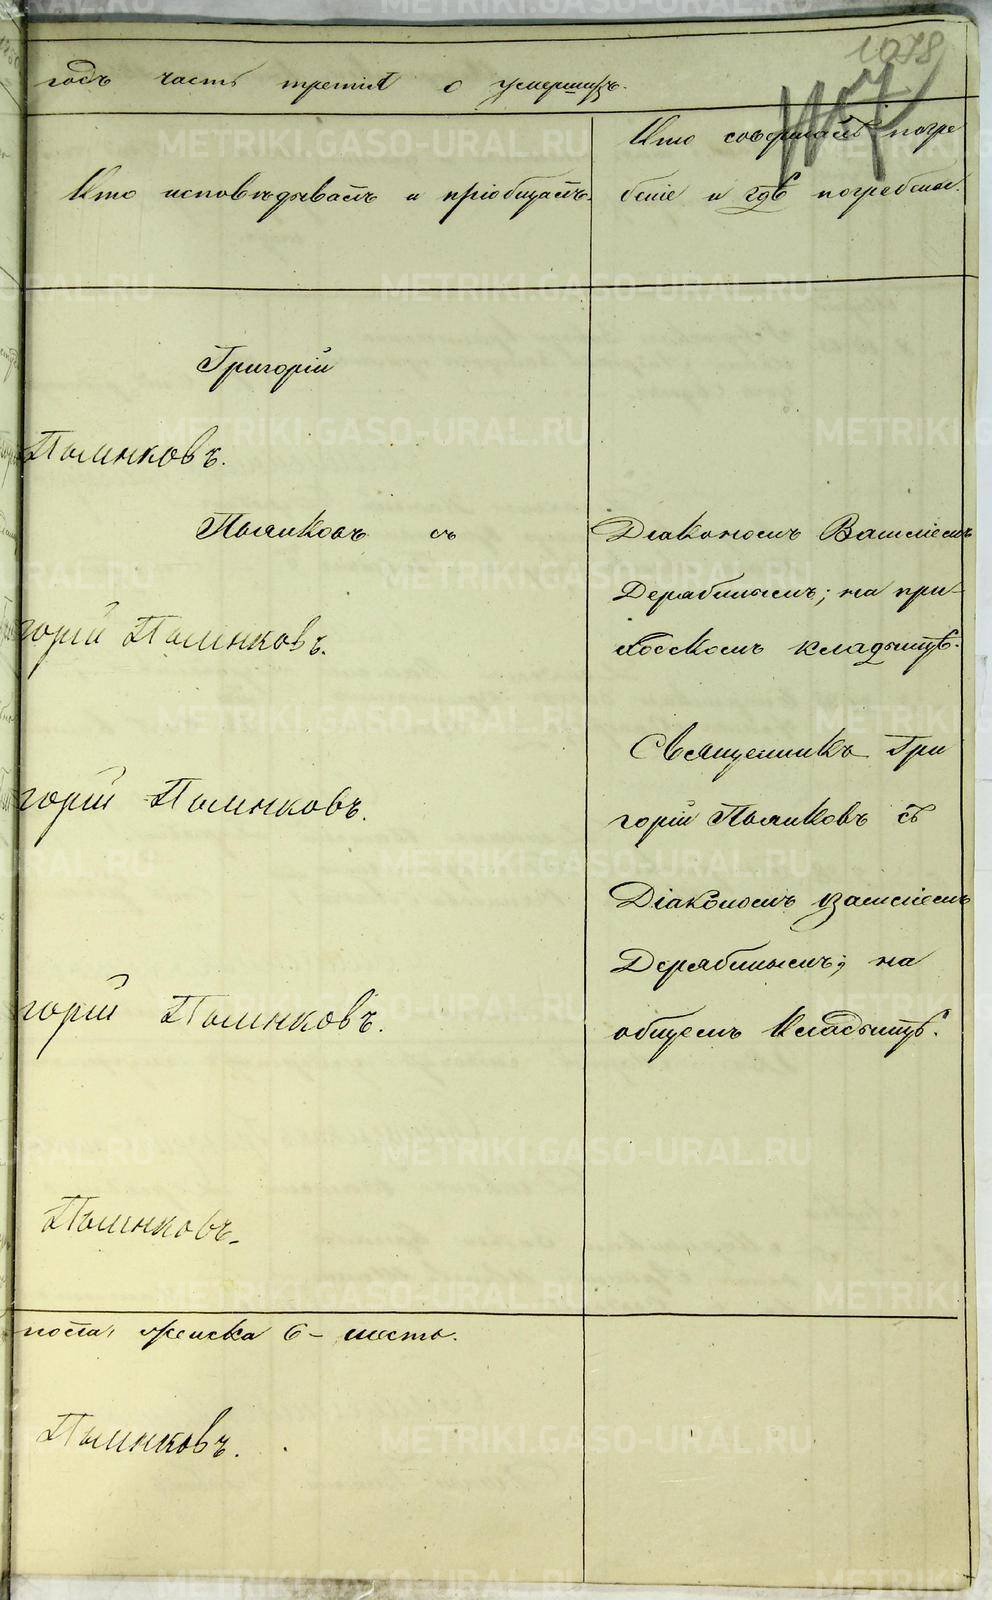 1078
годъ часть третія о умершихъ.
Кто исповѣдывалъ и пріобщалъ.
Кто совершалъ погре
беніе и гдѣ погребены.
Григорій
Пьянковъ.
Пьянковъ съ
горій Пьянковъ.
горій Пьянковъ.
горій Пьянковъ.
Пьянковъ.
Діакономъ Василіемъ
Дерябинымъ; на при-
ходскомъ кладбищѣ.
Священникъ Гри
горій Пьянковъ съ
Діакономъ Василіемъ
Дерябинымъ; на
общемъ кладбищѣ.
пола, женска 6 – шесть.
Пьянковъ.
METRIKI.GASO-URAL.RU